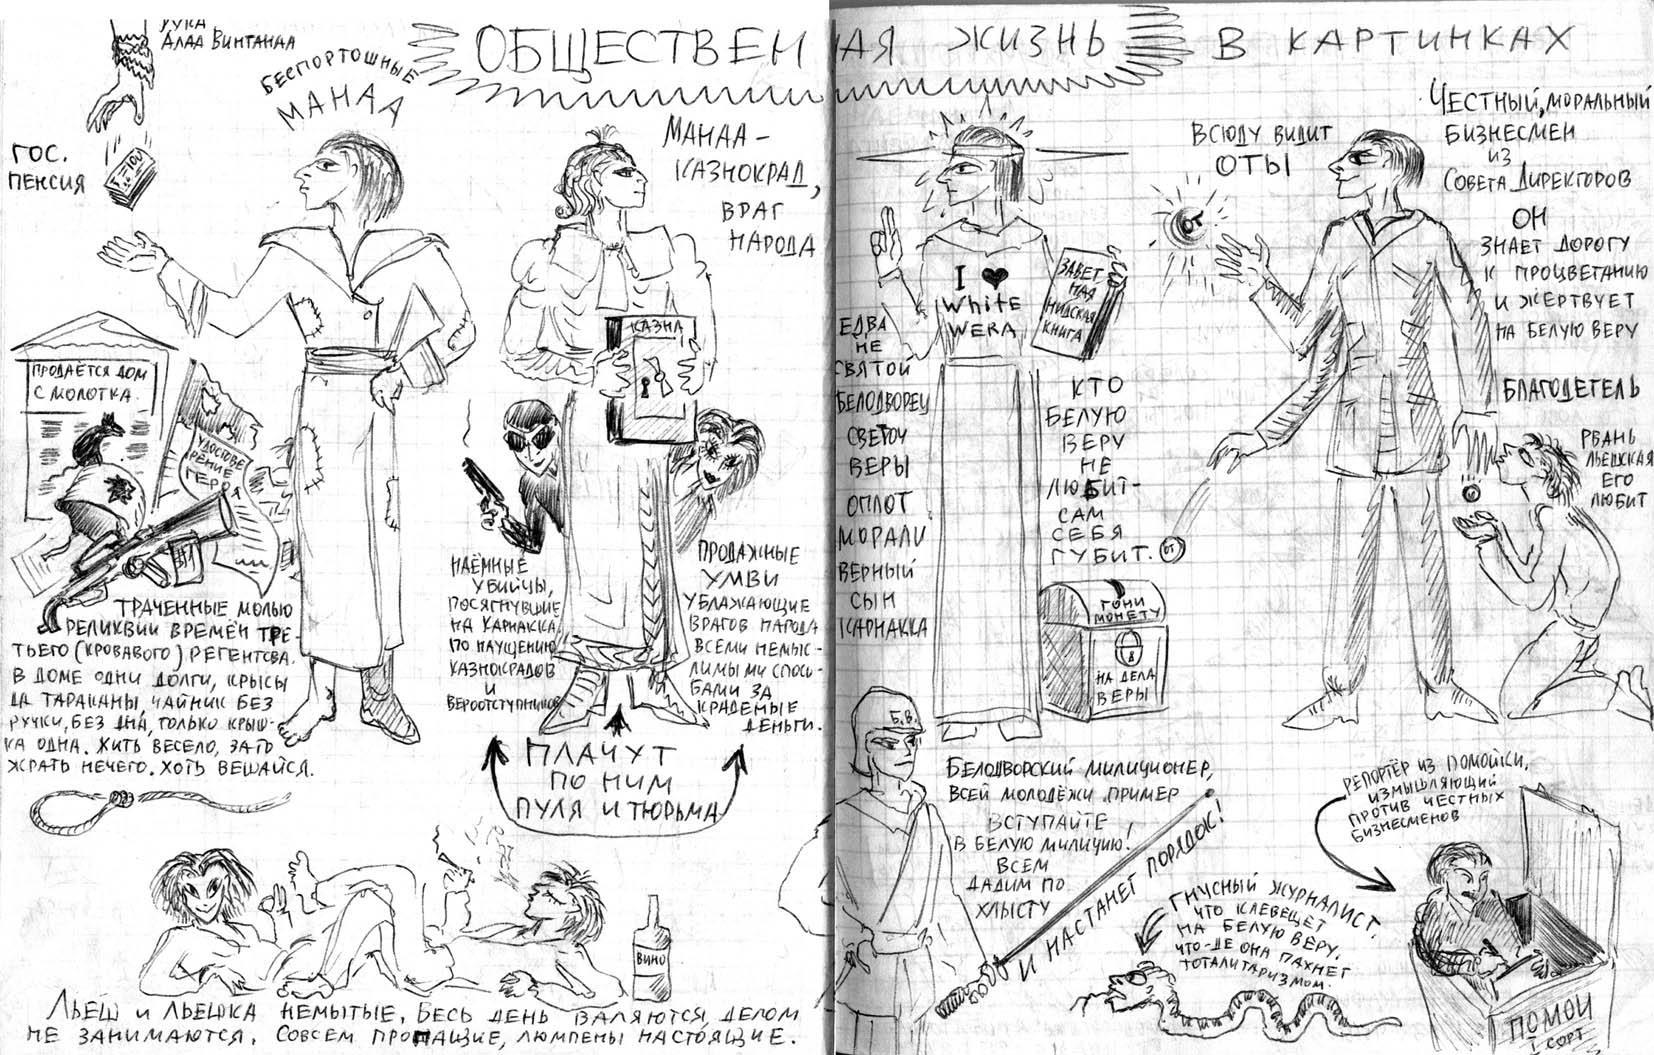 ОБЩЕСТВЕН АЯ ЖИЗНЬ В КАРТИНКАХ
РУКА
АЛАА ВИНТАНАА
БЕСПОРТОШНЫЕ
МАНАА
ГОС.
ПЕНСИЯ
100
МАНАА -
КАЗНОКРАД,
ВРАГ
НАРОДА
КАЗНА
ПРОДАЁТСЯ ДОМ
С МОЛОТКА.
УДОСТОВЕ
РЕНИЕ
ГЕРОЯ
ТРАЧЕННЫЕ МОЛЬЮ
РЕЛИКВИИ ВРЕМЁН ТРЕ-
ТЬЕГО (КРОВАВОГО) РЕГЕНТСВА.
В ДОМЕ ОДНИ ДОЛГИ, КРЫСЫ
ДА ТАРАКАНЫ, ЧАЙНИК БЕЗ
РУЧКИ, БЕЗ ДНА, ТОЛЬКО КРЫШ-
КА ОДНА. ЖИТЬ ВЕСЕЛО, ЗАТО
ЖРАТЬ НЕЧЕГО. ХОТЬ ВЕШАЙСЯ.
НАЁМНЫЕ
УБИЙЦЫ,
ПОСЯГНУВШИЕ
НА КАРНАККА
ПО НАУЩЕНИЮ
КАЗНОКРАДОВ
И
ВЕРООТСТУПНИКОВ
ПРОДАЖНЫЕ
УМВИ
УБЛАЖАЮЩИЕ
ВРАГОВ НАРОДА
ВСЕМИ НЕМЫС-
ЛИМЫМИ СПОСО-
БАМИ ЗА
КРАДЕНЫЕ
ДЕНЬГИ.
ПЛАЧУТ
ПО НИМ
ПУЛЯ И ТЮРЬМА
ВИНО
ЛЬЕШ И ЛЬЕШКА НЕМЫТЫЕ, ВЕСЬ ДЕНЬ ВАЛЯЮТСЯ, ДЕЛОМ
НЕ ЗАНИМАЮТСЯ. СОВСЕМ ПРОПАЩИЕ, ЛЮМПЕНЫ НАСТОЯЩИЕ.
I ♥
White
WERA
ЗАВЕТ
НАЯ
НИДСКАЯ
КНИГА
ЕДВА
НЕ
СВЯТОЙ
БЕЛОДВОРЕЦ
СВЕТОЧ
ВЕРЫ
ОПЛОТ
МОРАЛИ
ВЕРНЫЙ
СЫН
КАРНАККА
КТО
БЕЛУЮ
ВЕРУ
НЕ
ЛЮБИТ-
САМ
СЕБЯ
ГУБИТ.
ГОНИ
МОНЕТУ
НА ДЕЛА
ВЕРЫ
ВСЮДУ ВИДИТ
ОТЫ
ОТ
ОТ
ЧЕСТНЫЙ, МОРАЛЬНЫЙ
БИЗНЕСМЕН
ИЗ
СОВЕТА ДИРЕКТОРОВ
ОН
ЗНАЕТ ДОРОГУ
К ПРОЦВЕТАНИЮ
И ЖЕРТВУЕТ
НА БЕЛУЮ ВЕРУ
БЛАГОДЕТЕЛЬ
РВАНЬ
ЛЬЕШСКАЯ
ЕГО
ЛЮБИТ
Б.В.
БЕЛОДВОРСКИЙ МИЛИЦИОНЕР,
ВСЕЙ МОЛОДЁЖИ ПРИМЕР
ВСТУПАЙТЕ
В БЕЛУЮ МИЛИЦИЮ!
ВСЕМ
ДАДИМ ПО
ХЛЫСТУ
И НАСТАНЕТ ПОРЯДОК!
ГНУСНЫЙ ЖУРНАЛИСТ.
ЧТО КЛЕВЕЩЕТ
НА БЕЛУЮ ВЕРУ.
ЧТО-ДЕ ОНА ПАХНЕТ
ТОТАЛИТАРИЗМОМ.
РЕПОРТЁР ИЗ ПОМОЙКИ,
ИЗМЫШЛЯЮЩИЙ
ПРОТИВ ЧЕСТНЫХ
БИЗНЕСМЕНОВ
ПОМОИ
I СОРТ